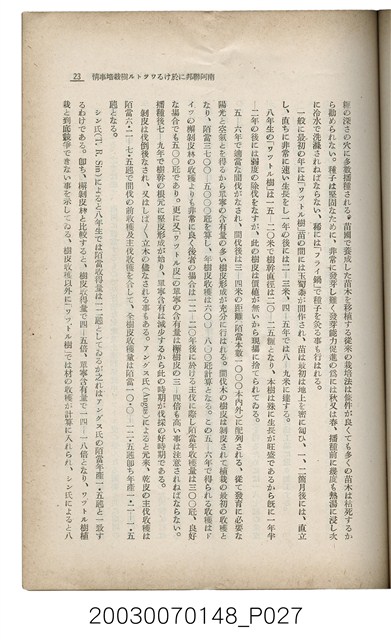 南阿聯邦に於けるワットル樹栽培事情　23
種の深さの穴に多數播種される。苗圃で養成した苗木を移植する從來の栽培法は條件が良くても多くの苗木は枯死するか
ら勸められない。種子は堅固なために、非常に發芽し難く發芽能力促進の爲には秋又は春、播種前に幾度も熱湯に浸し次
に冷水で洗滌されねばならない。稀には「フライ鍋」で種子を炙る事も行はれる。
一般に最初の年には「ワットル樹」苗の間には玉蜀黍が間作され、苗は最初は地上を密に匐ひ、一、二箇月後には、直立
し、直ちに非常に速い生長をし一年の後には二-三米、四-五年では八-九米に達する。
八年生の「ワットル樹」は一五-二〇米で樹幹直徑は二〇-二五糎となり、本樹は殊に生長が旺盛であるから既に一年半
-二年の後には弱度の除伐をなすが、此の樹皮は價値が無いから現場に捨てられてゐる。
五-六年で適當な間伐がなされ、間伐後は三-四米の距離(陌當本數一、〇〇〇本内外)に配列される、從て發育に必要な
陽光と空氣とを得るから單寧の含有量の多い樹皮形成が充分に行はれる。間伐木の樹皮は剝皮されて植栽の最初の收穫と
なり、陌當三七〇〇-五〇〇〇瓩を算し、年樹皮收穫は六〇〇-八〇〇瓩計算となる。この五-六年で得られる收穫はド
イツの檞剝皮林の收穫よりも非常に良く後者の場合は一二-二〇年後に於ける主伐に際し陌當年收穫量は三〇〇瓩、良好
な場合でも五〇〇瓩であり。更に又「ワットル皮」の單寧の含有量は檞樹皮の三-四倍も高い事は注意されねばならない。
播種後七-九年で樹脊の根元に堅皮形成が始り、單寧含有は減少するから此の時期が伐採の好時期である。
剝皮は伐倒後なされ、又はしば〱立木の儘なされる事もある。アングス氏(Angus)によると元來、乾皮の主伐收穫は
陌當六・二-七・五瓲で間伐の前收穫及主伐收穫を合して、全樹皮收穫量は陌當一〇・〇-一二・五瓲卽ち年產一・二-一・五
瓲となる。
シン氏(T. R. Sin)によると八年生では陌當收穫量は一二瓲としてゐるがこれはアングス氏の陌當年產一・五瓲と一致す
るわけである。卽ち、檞剝皮林と比較すると、樹皮の得量で四-五倍、單寧含有量で一四-一八倍となり、ワットル樹植
栽と到底競爭できない事を示してゐる。樹皮收穫以外に「ワットル樹」では材の收穫が計算に入れられ、シン氏によると八
20030070148_P027